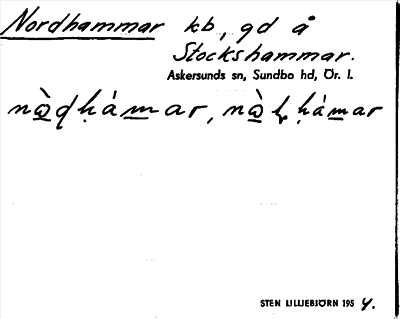 Nordhammar kb, gd å
Stockshammar.
Askersunds sn, Sundbo hd, Ör. l.
STEN LILLIEBJÖRN 1954.